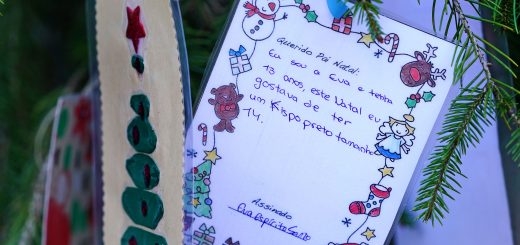 Querido Pai Natal:
Eu sou a Eva e tenho
13 anos, este Natal eu
gostava de ter
um Kispo preto tamanho
14.
Assinado
Eva Espírito Santo